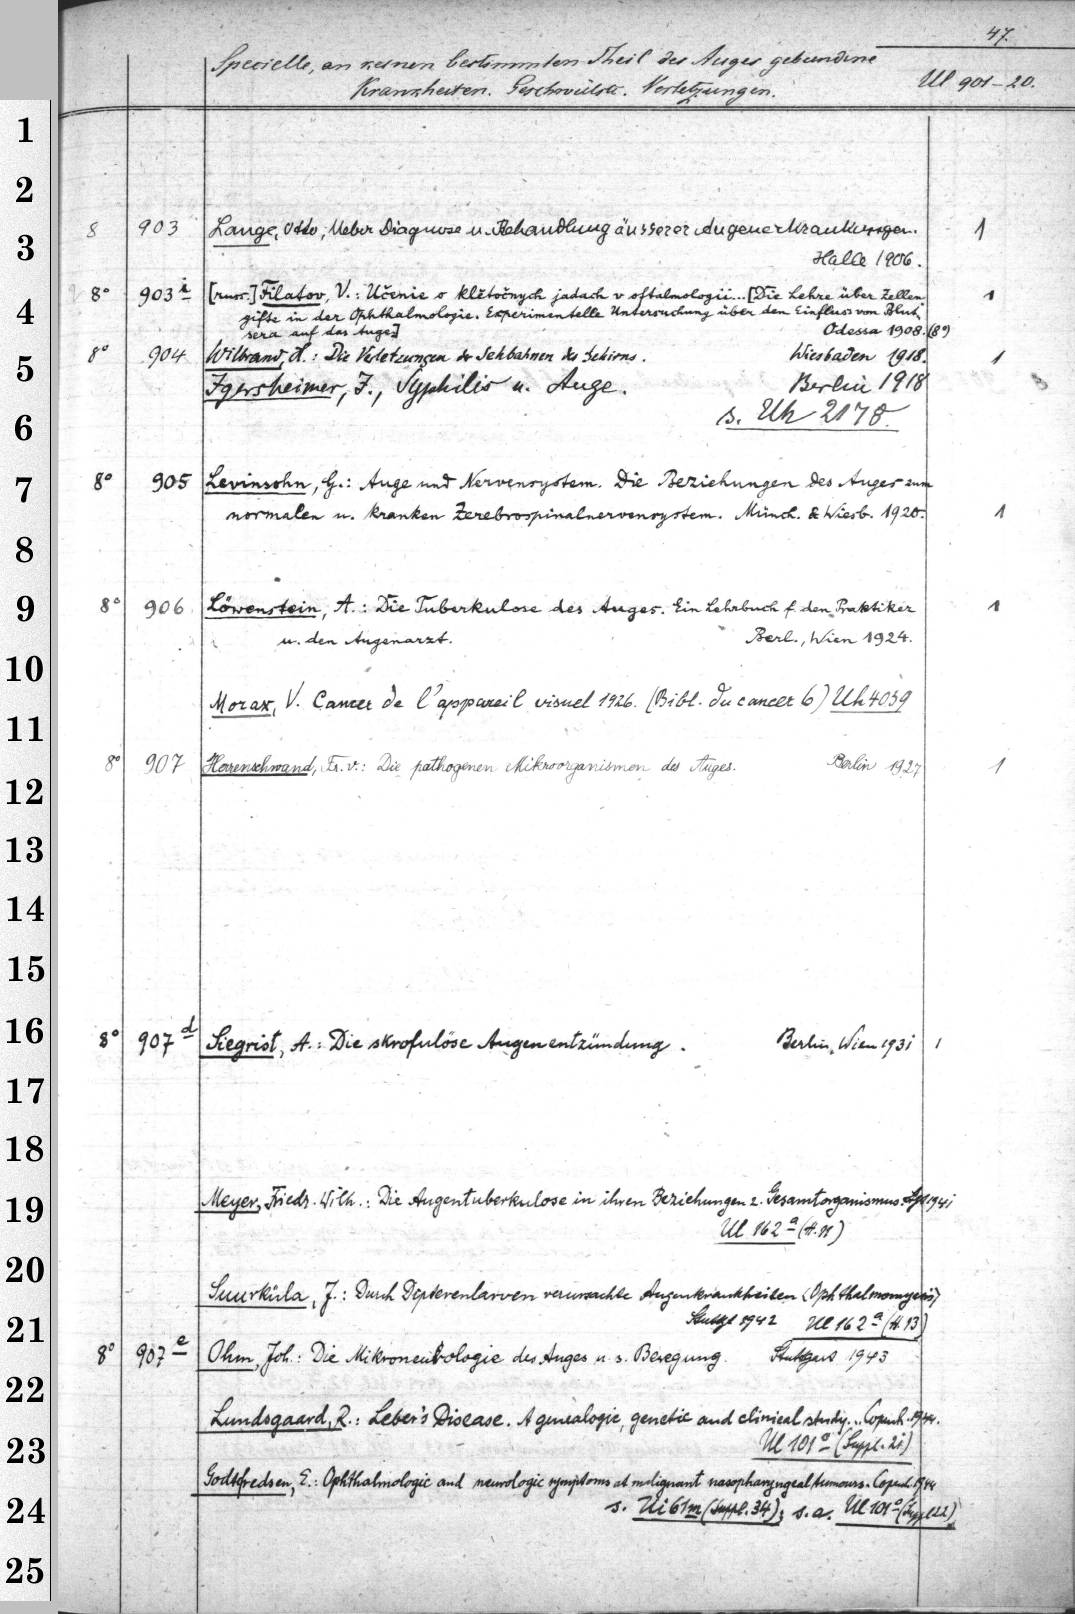 47.
Specielle, an keinen bestimmten Theil des Auges gebundene
Krankheiten. Geschwülste. Verletzungen. Ul 901-20.
1
2
8 903 Lange, Otto, Ueber Diagnose u. Behandlung äusserer Augenerkrankungen. 1
3 Halle 1906.
8° 903 i [russ.] Filatov, V.: Učenie o klětočnych jadach v oftalmologii... [Die Lehre über Zellen 1
4 gifte in der Ophthalmologie. Experimentelle Untersuchung über den Einfluss von Blut
sera auf das Auge] Odessa 1908. (8°)
8° 904 Wilbrand, H.: Die Verletzungen der Sehbahnen des Gehirns. Wiesbaden 1918. 1
5 Igersheimer, J., Syphilis u. Auge. Berlin 1918
6 s. Uh 2178.
7 8° 905 Levinsohn, G.: Auge und Nervensystem. Die Beziehungen des Auges zum
normalen u. kranken Zerebrospinalnervensystem. Münch. & Wiesb. 1920. 1
8
9 8° 906 Löwenstein, A.: Die Tuberkulose des Auges. Ein Lehrbuch f. den Praktiker 1
u. den Augenarzt. Berl., Wien 1924.
10
Morax, V. Cancer de l'appareil visuel 1926. (Bibl. du cancer 6) Uh 4059
11
8° 907 Herrenschwand, Fr. v.: Die pathogenen Mikroorganismen des Auges. Berlin 1927 1
12
13
14
15
16 8° 907 d Siegrist, A.: Die skrofulöse Augenentzündung. Berlin, Wien 1931 1
17
18
19 Meyer, Friedr. Wilh.: Die Augentuberkulose in ihren Beziehungen z. Gesamtorganismus. Lpz 1941
Ul 162 a (H. 11)
20
Suurküla, J.: Durch Dipterenlarven verursachte Augenkrankheiten (Ophthalmomyiasis)
21 Stuttg. 1942 Ul 162 a (H. 13)
8° 907 e Ohm, Joh.: Die Mikroneurologie des Auges u. s. Bewegung. Stuttgart 1943
22
Lundsgaard, R.: Leber's Disease. A genealogic, genetic and clinical study... Copenh. 1944.
23 Ul 101 a (Suppl. 21)
Godtfredsen, E.: Ophthalmologic and neurologic symptoms at malignant nasopharyngeal tumours. Copenh. 1944
24 s. Ui 61m (Suppl. 34); s. a. Ul 101 a (Suppl 22)
25